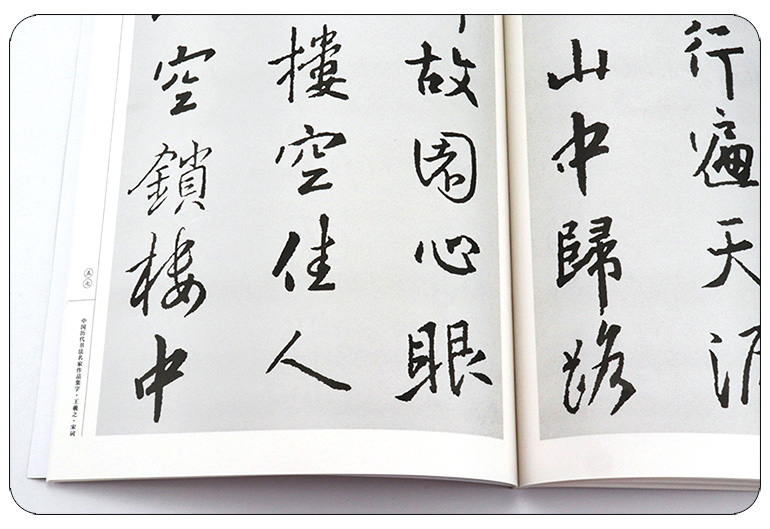 行遍天涯
山中歸路
故園心眼
樓空佳人
空鎖樓中
五七
中国历代书法名家作品集字·王羲之·宋词